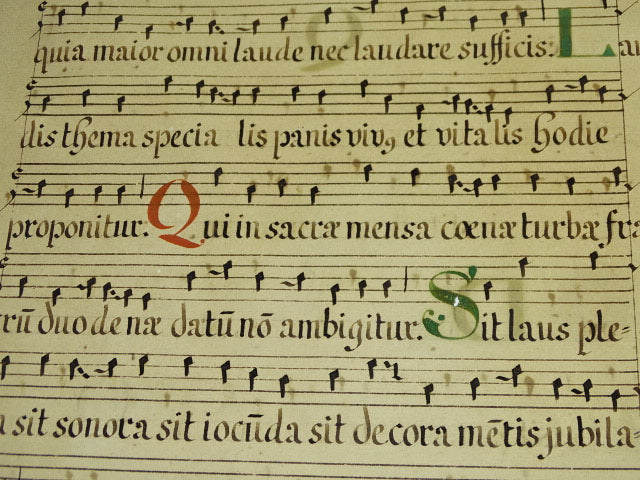 quia maior omni laude nec laudare sufficis. Lau
dis thema specia lis panis vivꝰ et vitalis hodie
proponitur. Qui in sacræ mensa cœnæ turbæ fra
trū duodenæ datū nō ambigitur. Sit laus ple=
a sit sonora sit iocūda sit decora mētis jubila=